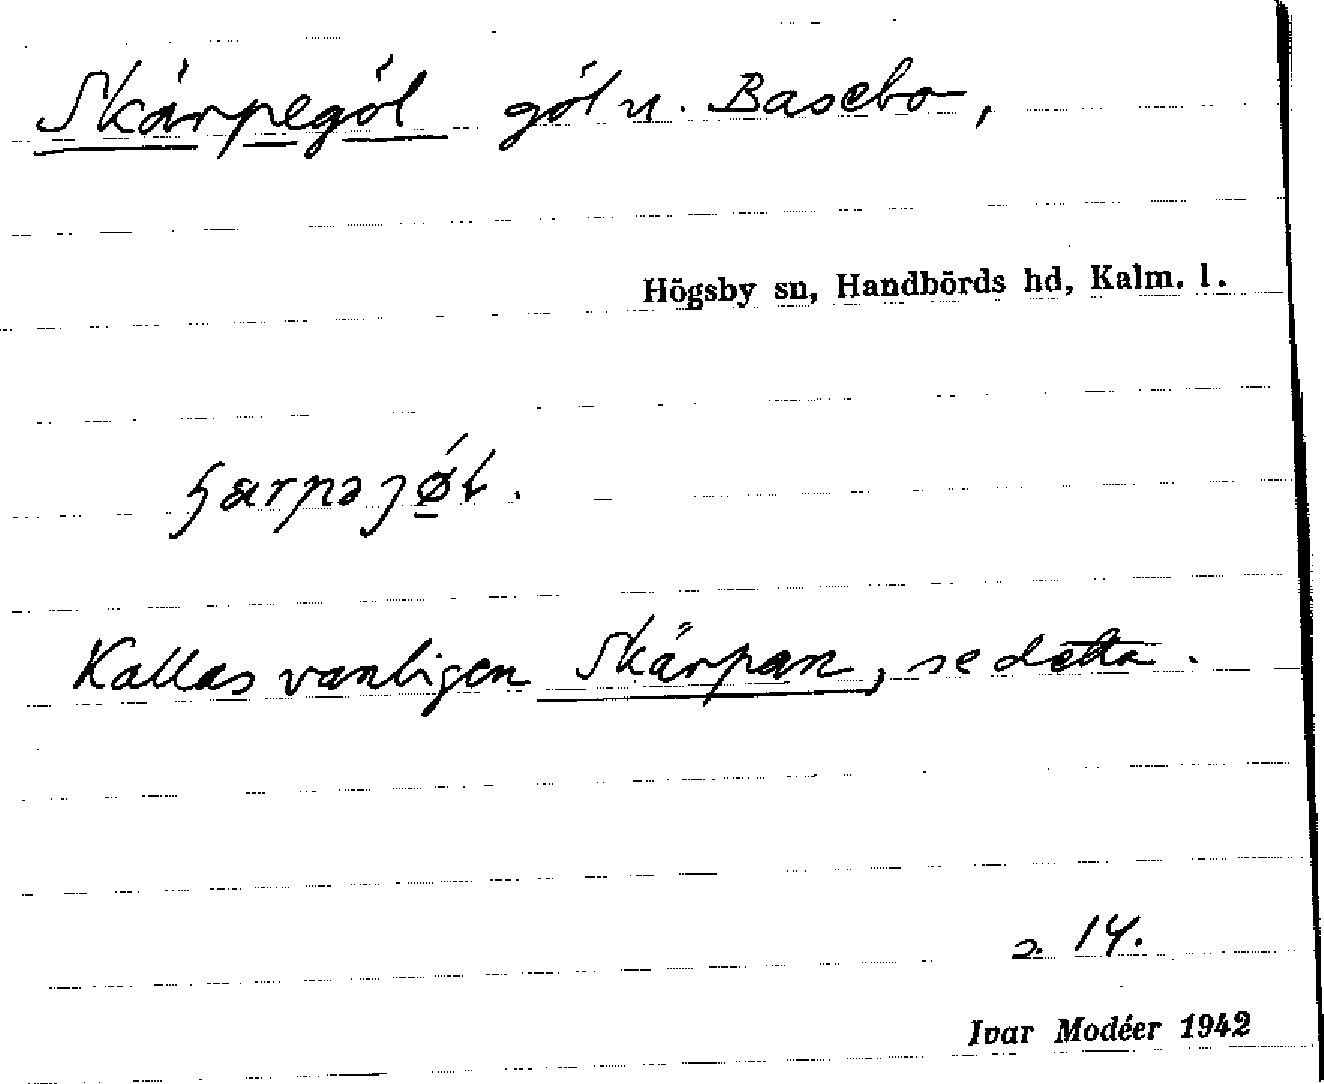 Skärpegöl göl u. Basebo,
Högsby sn, Handbörds hd, Kalm. l.
Kallas vanligen Skärpan, se detta.
2. 14.
Ivar Modéer 1942